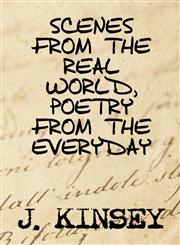 SCENES
FROM THE
REAL
WORLD,
POETRY
FROM THE
EVERYDAY
J. KINSEY